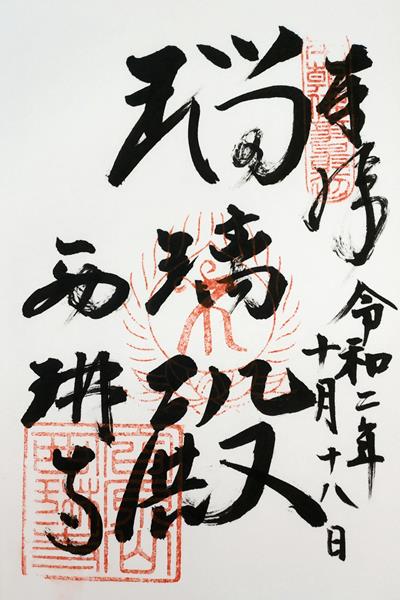 奉拝
令和二年
十月十八日
瑠璃殿
西琳寺